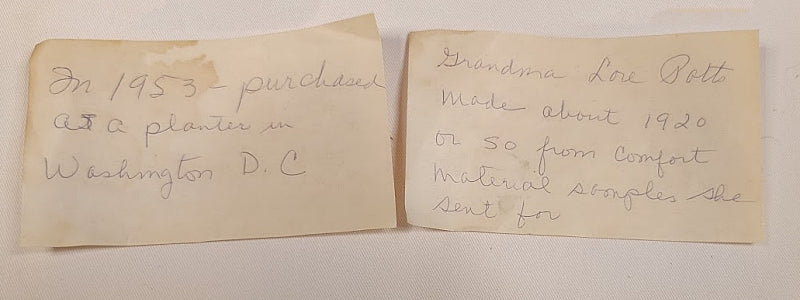 In 1953 - purchased
as a planter in
Washington D.C
Grandma Lore Potts
Made about 1920
or so from comfort
Material samples she
sent for